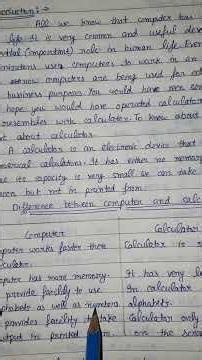 roduction:→
All we know that computer has
life. It is very common and useful devi
ential (important) role in human life. Ever
anizations uses computers to work in an
computers are being used for
business purpose. You would have seen
hope you would have operated calculator
resembles with calculator. To know about
about calculator.
A calculator is an electronic device that
merical calculations. It has either no memory
its capacity is very small we can take
een but not in printed form.
Difference between computer and calc
Computer Calculator
mputer works faster than Calculator is
culator.
mputer has more memory. It has very l
provide facility to use In calculator
phabets as well as numbers alphabets.
provides facility to take Calculator only
utput in printed on the scree